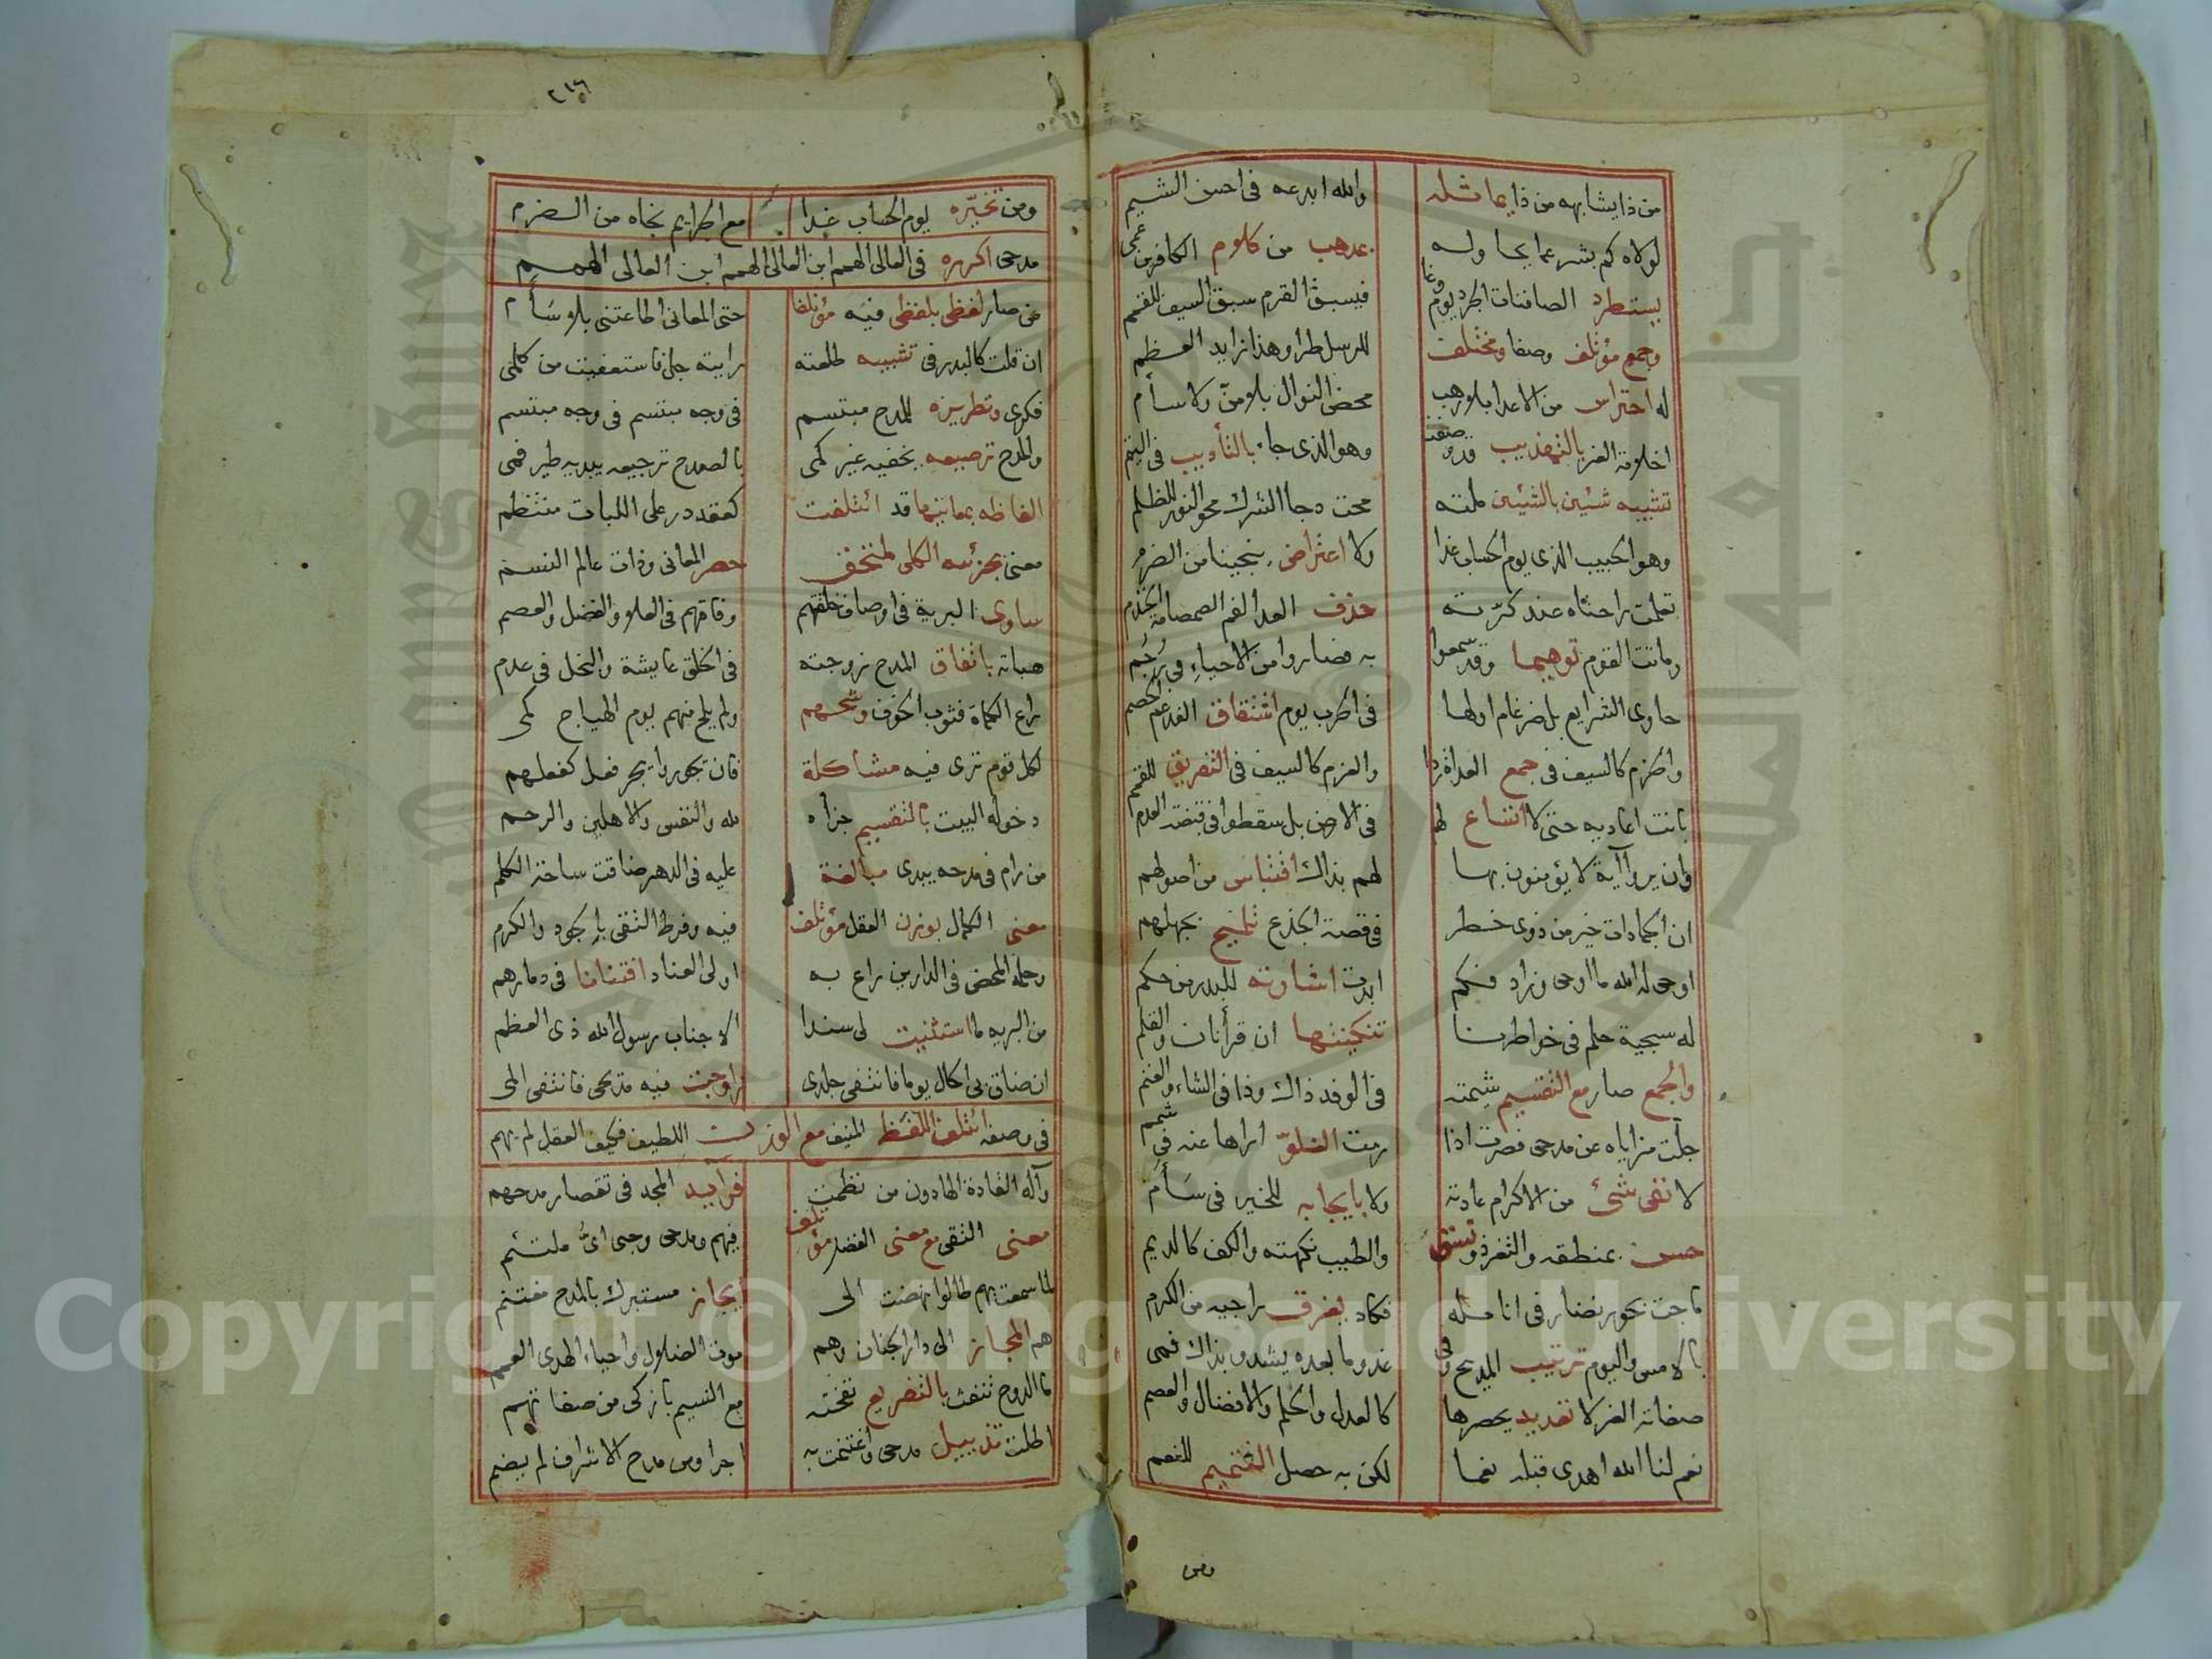 من ذا يشابهه من ذا يماثله والله ابدعه في احسن الشيم
لولاه كم بشر عما يحاوله بمذهب من كلام الكافرين عمى
يستطرد الصافنات الجرد يوم وغا فيسبق القرم سبق السيف للقمم
وجمع مؤتلف وصفا ومختلف للرسل طرا وهذا زايد العظم
له احتراس من الاعدا بلا رهب محض النوال بلا منّ ولا سأم
اخلاقه الغر بالتهذيب قد وهو الذي جاء بالتأديب في اليتم
تشبيه شئين بالشئين ملته محت دجا الشرك محو النور للظلم
وهو الحبيب الذي يوم الحساب غدا ولا اعتراض ينجينا من الضرم
راحتاه عند كرّته حذف العدا الصمصامة الخذم
وماتت القوم توهيما وقد سمعوا به فصاروا من الاحياءِ في رُجَم
حاوى الشرايع بل ضرغام اولها في الحرب يوم اشتقاق
والحزم كالسيف في جمع العداة ردا والعزم كالسيف في التفريق للقمم
باتت اعاديه حتى لا اتساع لها في الارض بل سقطوا في قبضة العدم
وان يروا آية لا يؤمنون بها لهم بذاك اقتباس من اصولهم
ان الجمادات خير من ذوى خطر في قصة الجذع تلميح بجهلهم
اوحى له الله ما اوحى وزاد فكم ابدت اشارته للبدر من حكم
له سجية حلم في خواطرنا تنكيتها ان قرأنا ن والقلم
والجمع صار مع التقسيم شيمته في الوفد ذاك وذا في الشاء والغنم
جلّت مزاياه عن مدحى فصرت اذا رمت الغلوّ اراها عنه في شمم
لا نفى شئ من الاكرام عادته ولا بايجابه للخير في سَأَم
حسن بمنطقه والثغر ذو نسق والطيب نكهته والكف كالديم
ماجت بحور نضار في انامله فكاد يغرق راجيه من الكرم
بالامس واليوم ترتيب المديح وفى غد وما بعده يشدو بذاك فمى
صفاته الغر لا تعديد يحصرها كالعدل والحلم والافضال والعصم
نعم لنا الله اهدى قبله نعما لكن به حصل التتميم للنعم
ومن
٢١٦
ومن تخيّره يوم الحساب غدا مع الكرايم نجاه من الضرم
مدحى اكرره في العالى الهمم ابن العالى الهمم ابن العالى الهمم
من صار لفظى بلفظى فيه مؤتلفا حتى المعانى اطاعتنى بلا سَأَم
ان قلت كالبدر في تشبيه طلعته رايته جل فاستعفيت من كلمى
فكرى وتطريزه للمدح مبتسم في وجه مبتسم في وجه مبتسم
والمدح ترصيعه يخفيه غير كمى بالصدح ترجيعه يبديه طير فمى
الفاظه بمعانيها قد ائتلفت كعقد در على اللبات منتظم
معنى بجزئيه الكلى حصر المعانى وفات عالم النسم
ساوى البرية في اوصاف خلقهم وفاقهم في العلا والفضل والعصم
هباته باتفاق المدح زوجته في الخلق عايشة والبخل في عدم
راع الكماة فثوب الخوف وشحهم ولم يلح منهم يوم الهياج كمى
لكل قوم ترى فيه مشاكلة فان تجوروا يجر فعل كفعلهم
دخوله البيت بالتقسيم جزاه لله والنفس والاهلين والرحم
من رام في مدحه يبدى مبالغة عليه في الدهر ضاقت ساحة الكلم
معنى الكمال بوزن العقل مؤتلف فيه وفرط التقى بالجود والكرم
وحلمه المحض في الدارين راع به اولى العناد افتنانا في دمارهم
من البريه ما استثنيت لى سندا الا جناب رسول الله ذى العظم
ان ضاق بى الحال يوما فانتفى جلدى زاوجت فيه مديحى فانتفى المى
في وصفه ائتلف اللفظ المنيف مع الوزن اللطيف فكيف العقل لم يهم
وآله القادة الهادون من نظمت فرآييد المجد في تقصار مدحهم
معنى التقى مع معنى الفضل مؤتلف فيهم ومدحى وحبى اىُّ ملتئم
لما سمعت بهم طالوا نهضت الى ايجاز مستبرك بالمدح مغتنم
هم المجاز الى دار الجنان وهم موت الضلال واحياء الهدى العمم
ما الروح تنفث بالتفريع نفخته مع النسيم بازكى من صفاتهم
اطلت تذييل مدحى واغتنمت به اجرا ومن مدح الاشراف لم يضم